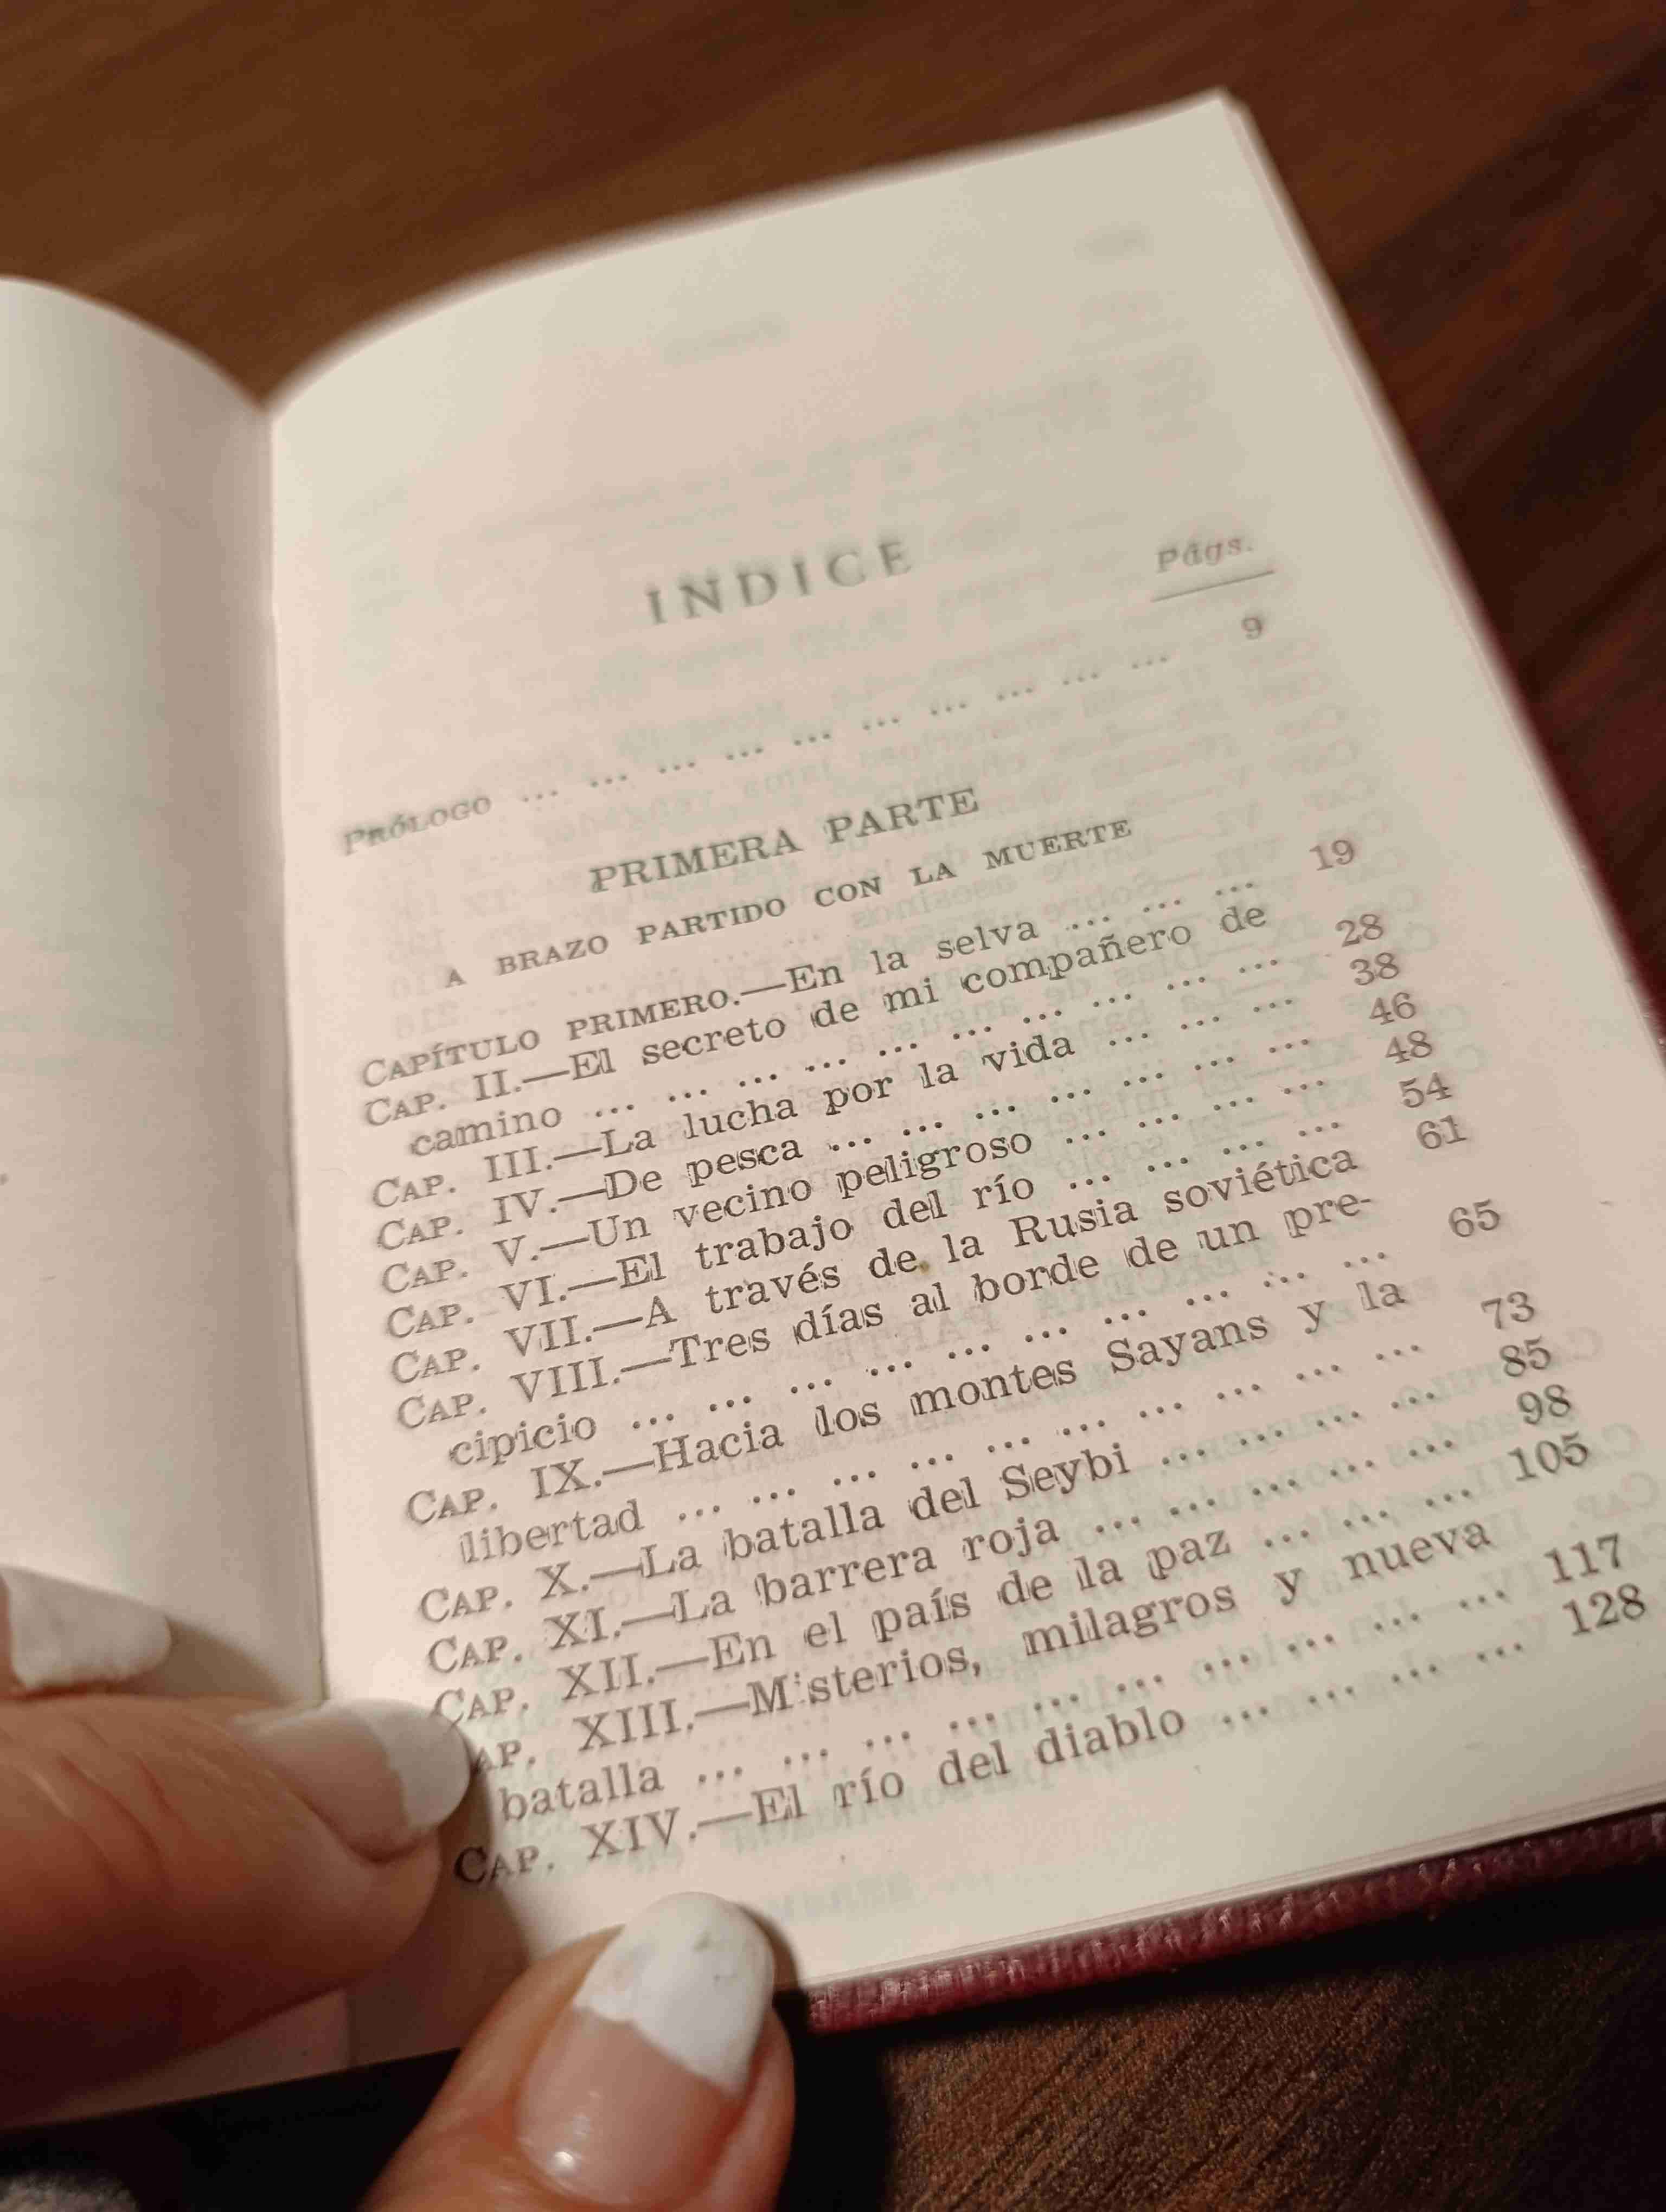 INDICE
Págs.
PRÓLOGO ... ... ... ... ... ... ... ... ... ... 9
PRIMERA PARTE
A BRAZO PARTIDO CON LA MUERTE
CAPÍTULO PRIMERO.—En la selva ... ... ... 19
CAP. II.—El secreto de mi compañero de
camino ... ... ... ... ... ... ... ... ... ... 28
CAP. III.—La lucha por la vida ... ... ... 38
CAP. IV.—De pesca ... ... ... ... ... ... ... 46
CAP. V.—Un vecino peligroso ... ... ... ... 48
CAP. VI.—El trabajo del río ... ... ... ... 54
CAP. VII.—A través de la Rusia soviética 61
CAP. VIII.—Tres días al borde de un pre-
cipicio ... ... ... ... ... ... ... ... ... ... 65
CAP. IX.—Hacia los montes Sayans y la
libertad ... ... ... ... ... ... ... ... ... ... 73
CAP. X.—La batalla del Seybi ... ... ... ... 85
CAP. XI.—La barrera roja ... ... ... ... ... 98
CAP. XII.—En el país de la paz ... ... ... 105
AP. XIII.—Misterios, milagros y nueva
batalla ... ... ... ... ... ... ... ... ... ... 117
CAP. XIV.—El río del diablo ... ... ... ... 128